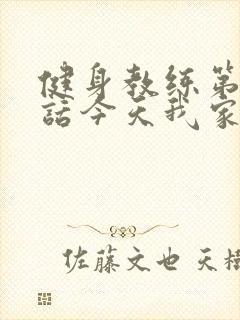 健身教练第
話今天我家
佐藤文也 天樹